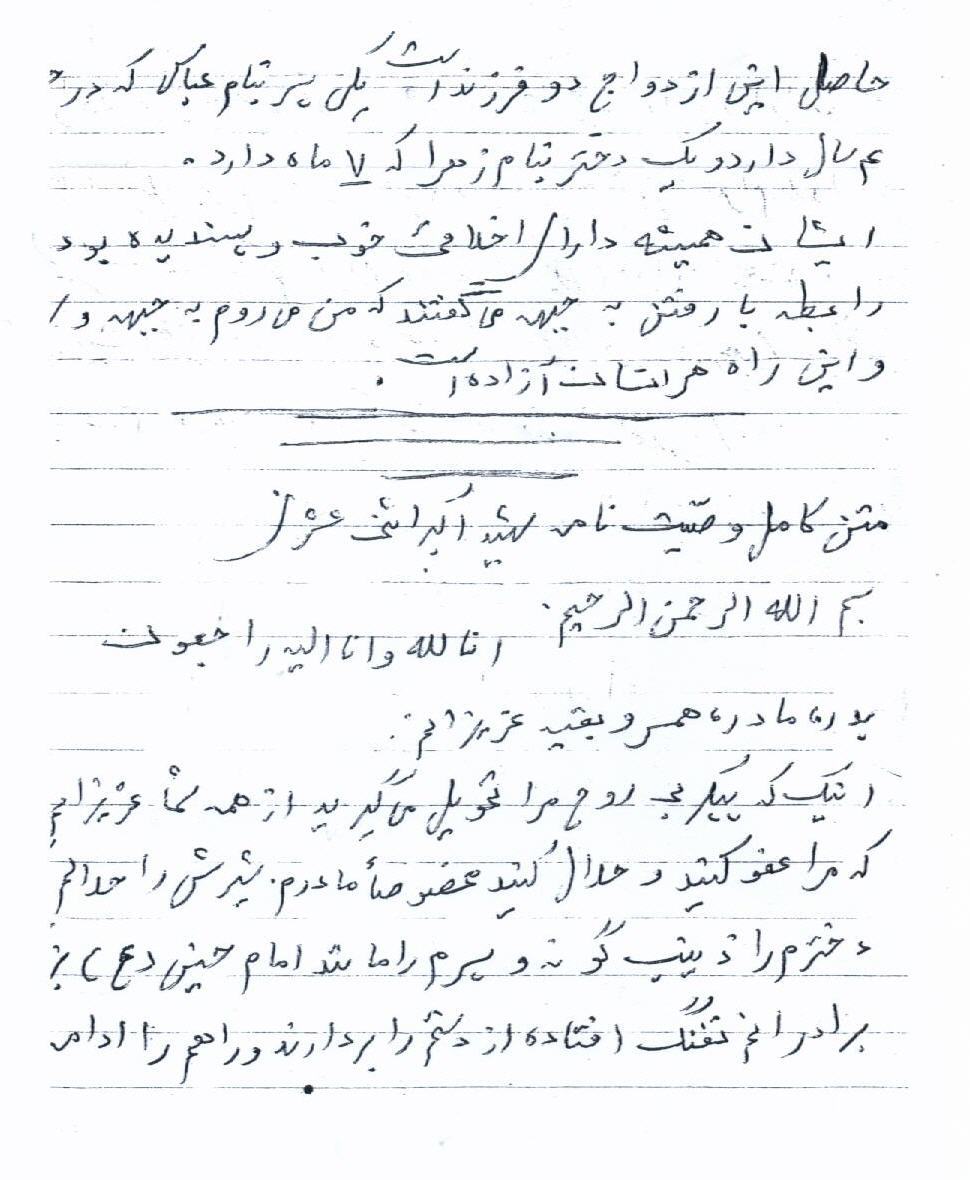 حاصل این ازدواج دو فرزند است یکی پسر بنام عباس که در
۴ سال دارد و یک دختر بنام زهرا که ۷ ماه دارد.
ایشان همیشه دارای اخلاقی خوب و پسندیده بود
رابطه با رفتن به جبهه می گفتند که من می روم به جبهه و
و این راه هر انسان آزاده است.
متن کامل وصیت نامه شهید اکبر
بسم الله الرحمن الرحیم.
انا لله و انا الیه راجعون
پدر، مادر، همسر و بقیه عزیزانم:
اینک که پیکر بی روح مرا تحویل می گیرید از همه شما عزیزانم
که مرا عفو کنید و حلال کنید مخصوصأ مادرم. شیرش را حلالم
دخترم را زینب گونه و پسرم را مانند امام حسین (ع)
برادرانم تفنگ افتاده از دستم را بردارند و راهم را ادامه